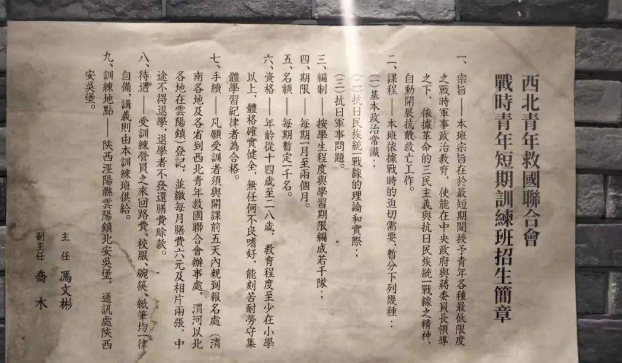 西北青年救國聯合會
戰時青年短期訓練班招生簡章
一、宗旨——本班宗旨在於最短期間授予青年各種最低限度
之戰時軍事政治教育，使能在中央政府與蔣委員長領導
之下，依據革命的三民主義與抗日民族統一戰線之精神，
自動開展抗敵救亡工作。
二、課程——本班依據戰時的迫切需要，暫分下列幾種：
(一)基本政治常識；
(二)抗日民族統一戰線的理論和實際；
(三)抗日軍事問題。
三、編制——按學生程度與學習期限編成若干隊；
四、期限——每期一月至兩個月。
五、名額——每期暫定一千名。
六、資格——年齡從十四歲至二八歲，教育程度至少在小學
以上，體格確實健全，無任何不良嗜好，能刻苦耐勞守集
體學習記律者為合格。
七、手續——凡願受訓者須與開課前五天內親到報名處（渭
南各地及各省到西北青年救國聯合會辦事處，渭河以北
各地在雲陽鎮）登記，並繳每月膳費六元及相片兩張，中
途不得退學，退學者不發還膳費賒款。
八、待遇——受訓練營員之來回路費、校服、碗筷、紙筆均一律
自備，講義則由本訓練班供給。
九、訓練地點——陝西涇陽縣雲陽鎮北安吳堡，通訊處陝西
安吳堡。
主任 馮文彬
副主任 喬木